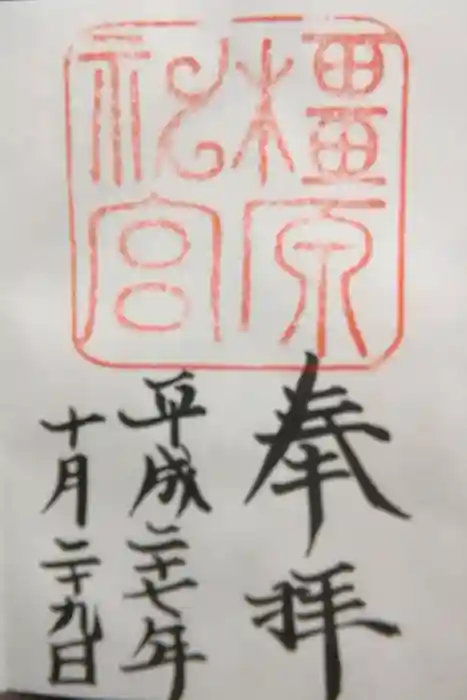 橿原
神宮
奉拝
平成二十七年
十月二十九日